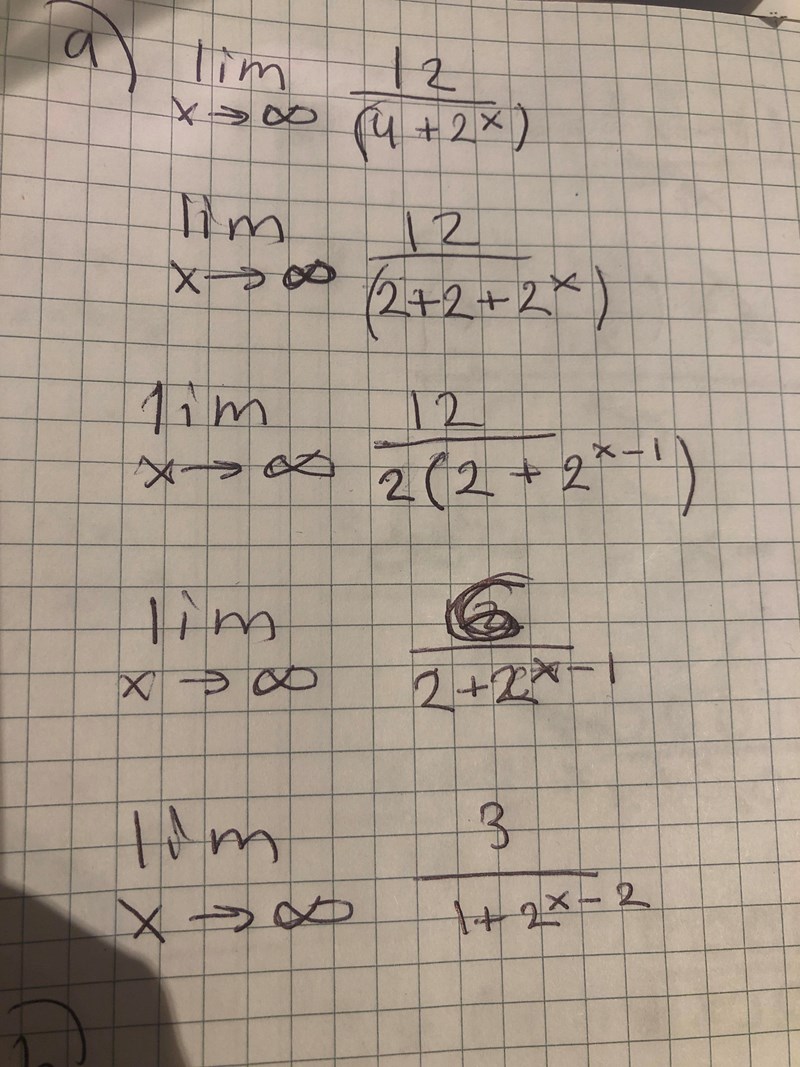 a) lim x→∞ 12/(4 + 2^x)
lim x→∞ 12/(2+2+2^x)
lim x→∞ 12/2(2 + 2^{x-1})
lim x→∞ 6/2+2^{x-1}
lim x→∞ 3/1+2^{x-2}